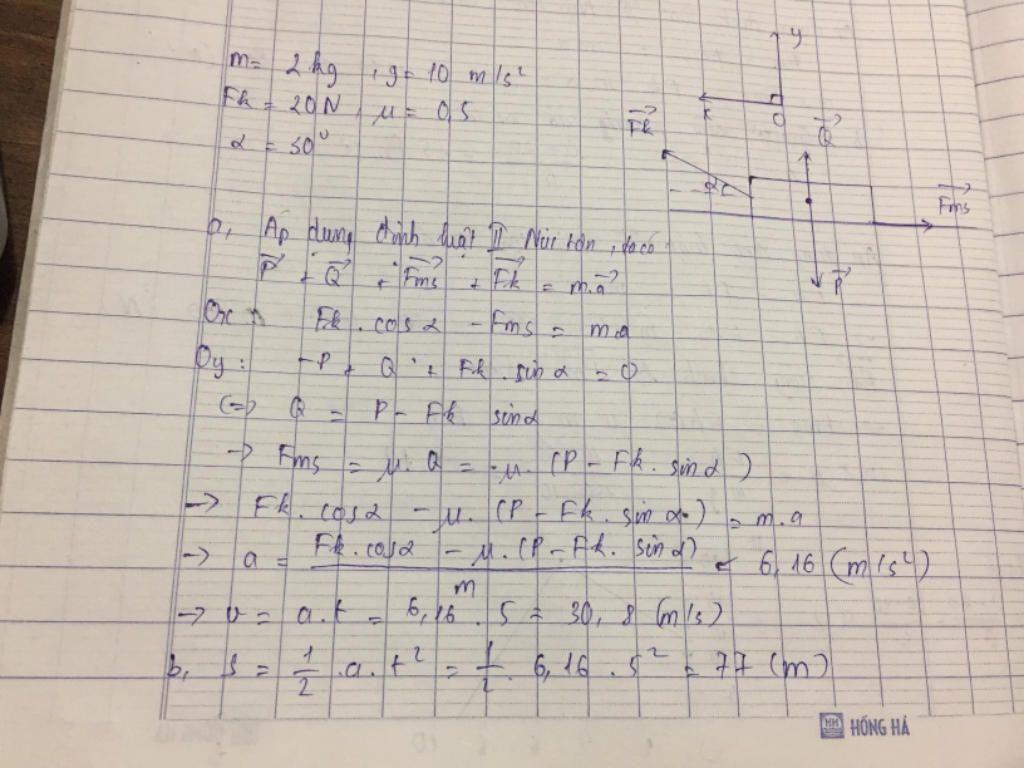 m = 2 kg ; g = 10 m/s²
Fk = 20N, μ = 0,5
α = 30°
y
x
O
Fk→
α
Q→
Fms→
P→
a, Áp dụng định luật II Niu tơn, ta có
P→ + Q→ + Fms→ + Fk→ = m.a→
Ox : Fk . cos α - Fms = m.a
Oy : -P + Q + Fk . sin α = 0
<=> Q = P - Fk sin α
-> Fms = μ. Q = μ. (P - Fk. sin α)
-> Fk. cos α - μ. (P - Fk. sin α) = m.a
-> a = (Fk. cos α - μ. (P - Fk. sin α)) / m = 6,16 (m/s²)
-> v = a.t = 6,16 . 5 = 30,8 (m/s)
b, s = 1/2 .a.t² = 1/2 . 6,16 . 5² = 77 (m)
HH HỒNG HÀ